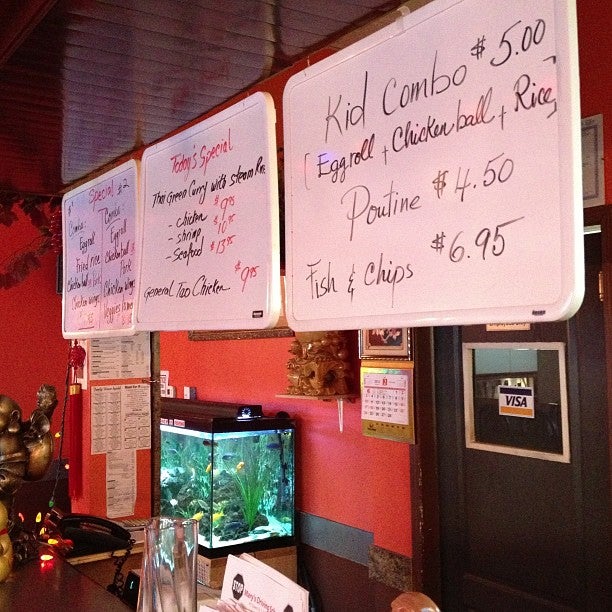 Special #2
Combo:
Eggroll
Fried rice
Chicken wings
Combo:
Eggroll
Chicken ball
Pork
Chicken wings
Today's Special
Thai Green Curry with steam Rice
- chicken $9.95
- shrimp $10.95
- seafood $13.95
General Tao Chicken $9.95
Kid Combo $5.00
[Eggroll + Chicken ball + Rice]
Poutine $4.50
Fish & Chips $6.95
VISA
STOP